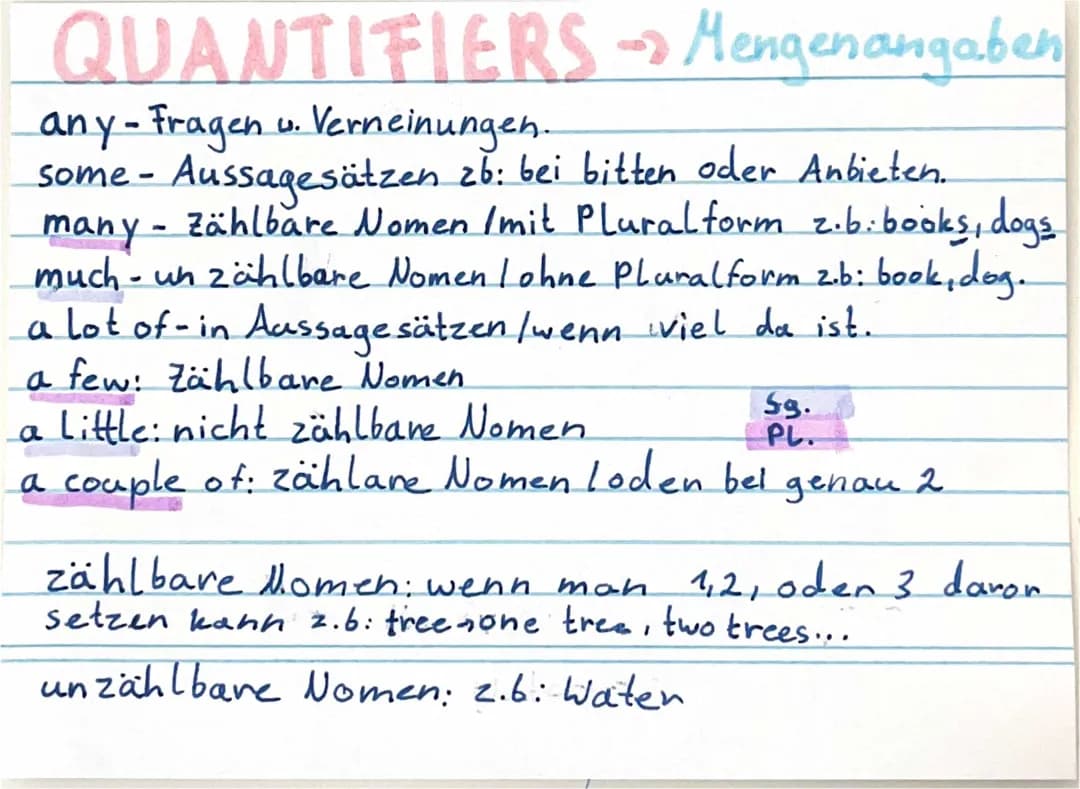 QUANTIFIERS → Mengenangaben
any - Fragen u. Verneinungen.
some - Aussagesätzen zb: bei bitten oder Anbieten.
many - Zählbare Nomen / mit Pluralform z.b.: books, dogs
much - un zählbare Nomen / ohne Pluralform z.b: book, dog.
a lot of - in Aussagesätzen / wenn viel da ist.
a few: Zählbare Nomen
Sg.
a little: nicht zählbare Nomen
PL.
a couple of: zählare Nomen / oder bei genau 2
zählbare Nomen: wenn man 1,2, oder 3 davor
setzen kann z.b: tree → one tree, two trees...
unzählbare Nomen: z.b: Water